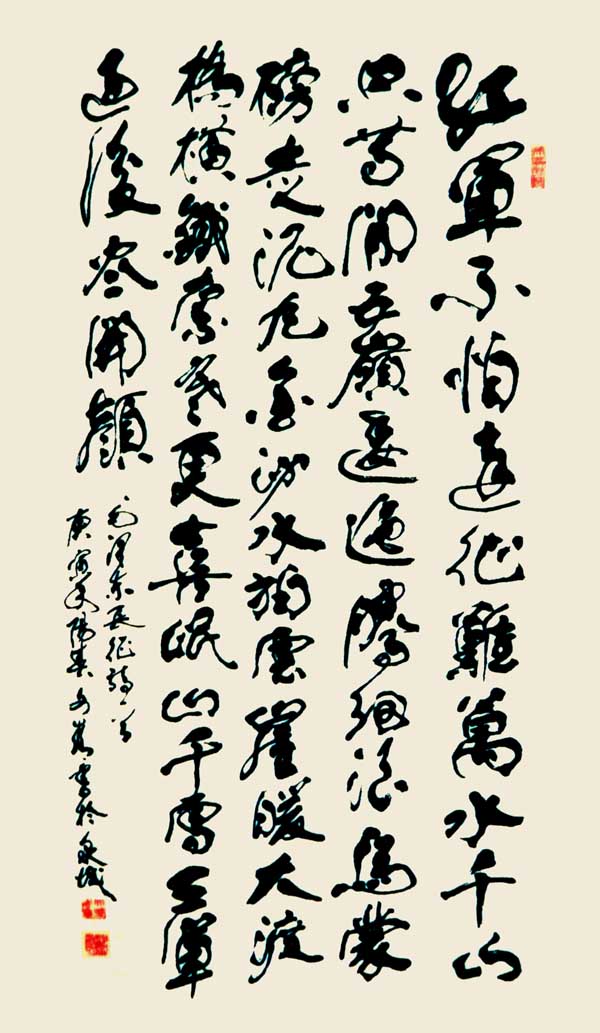 紅軍不怕遠征難萬水千山
只等閒五嶺逶迤騰細浪烏蒙
磅走泥丸金沙水拍雲崖暖大渡
橋橫鐵索寒更喜岷山千雪三軍
過後尽開顏
毛澤東長征詩一首
庚寅 書於泉城